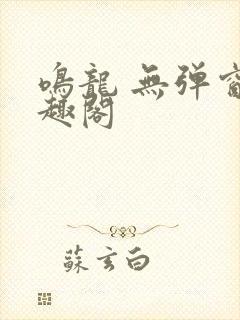 鳴龍 無弾窗
趣閣
蘇玄白